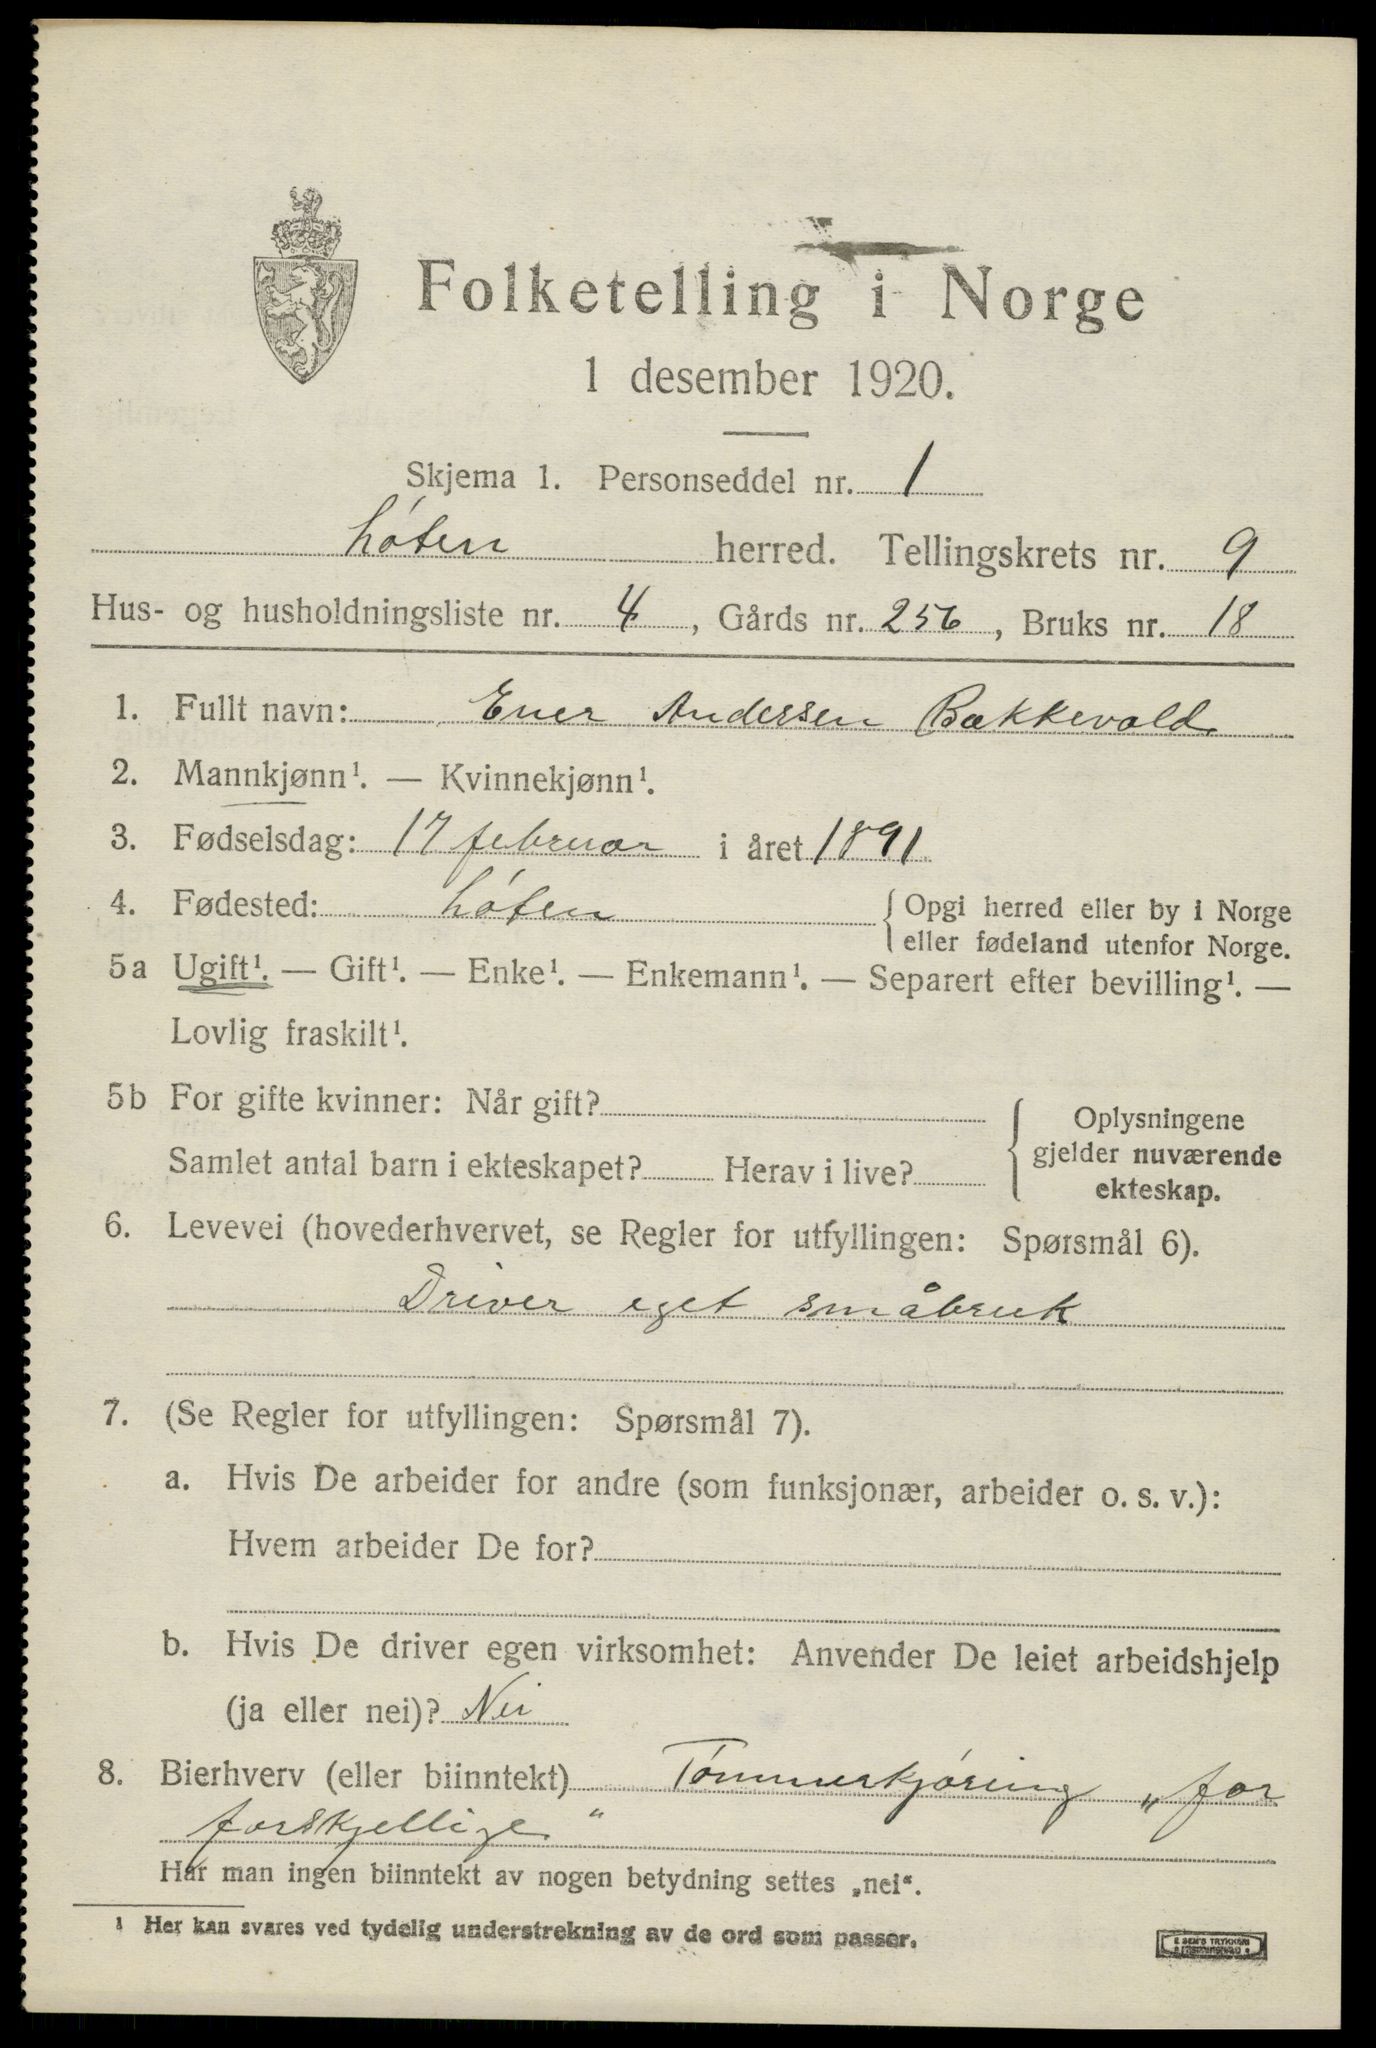 Folketelling i Norge
1 desember 1920.
Skjema 1. Personseddel nr. 1
Løten herred. Tellingskrets nr. 9
Hus- og husholdningsliste nr. 4, Gårds nr. 256, Bruks nr. 18
1. Fullt navn: Ener Andersen Bækkevold
2. Mannkjønn¹. — Kvinnekjønn¹.
3. Fødselsdag: 17 februar i året 1891
4. Fødested: Løten { Opgi herred eller by i Norge
eller fødeland utenfor Norge.
5a Ugift¹. — Gift¹. — Enke¹. — Enkemann¹. — Separert efter bevilling¹. —
Lovlig fraskilt¹.
5b For gifte kvinner: Når gift?
Samlet antal barn i ekteskapet? Herav i live?
{ Oplysningene
gjelder nuværende
ekteskap.
6. Levevei (hovederhvervet, se Regler for utfyllingen: Spørsmål 6).
Driver eget småbruk
7. (Se Regler for utfyllingen: Spørsmål 7).
a. Hvis De arbeider for andre (som funksjonær, arbeider o. s. v.):
Hvem arbeider De for?
b. Hvis De driver egen virksomhet: Anvender De leiet arbeidshjelp
(ja eller nei)? Nei
8. Bierhverv (eller biinntekt) Tømmerkjøring „for
forskjellige“
Har man ingen biinntekt av nogen betydning settes „nei“.
¹ Her kan svares ved tydelig understrekning av de ord som passer.